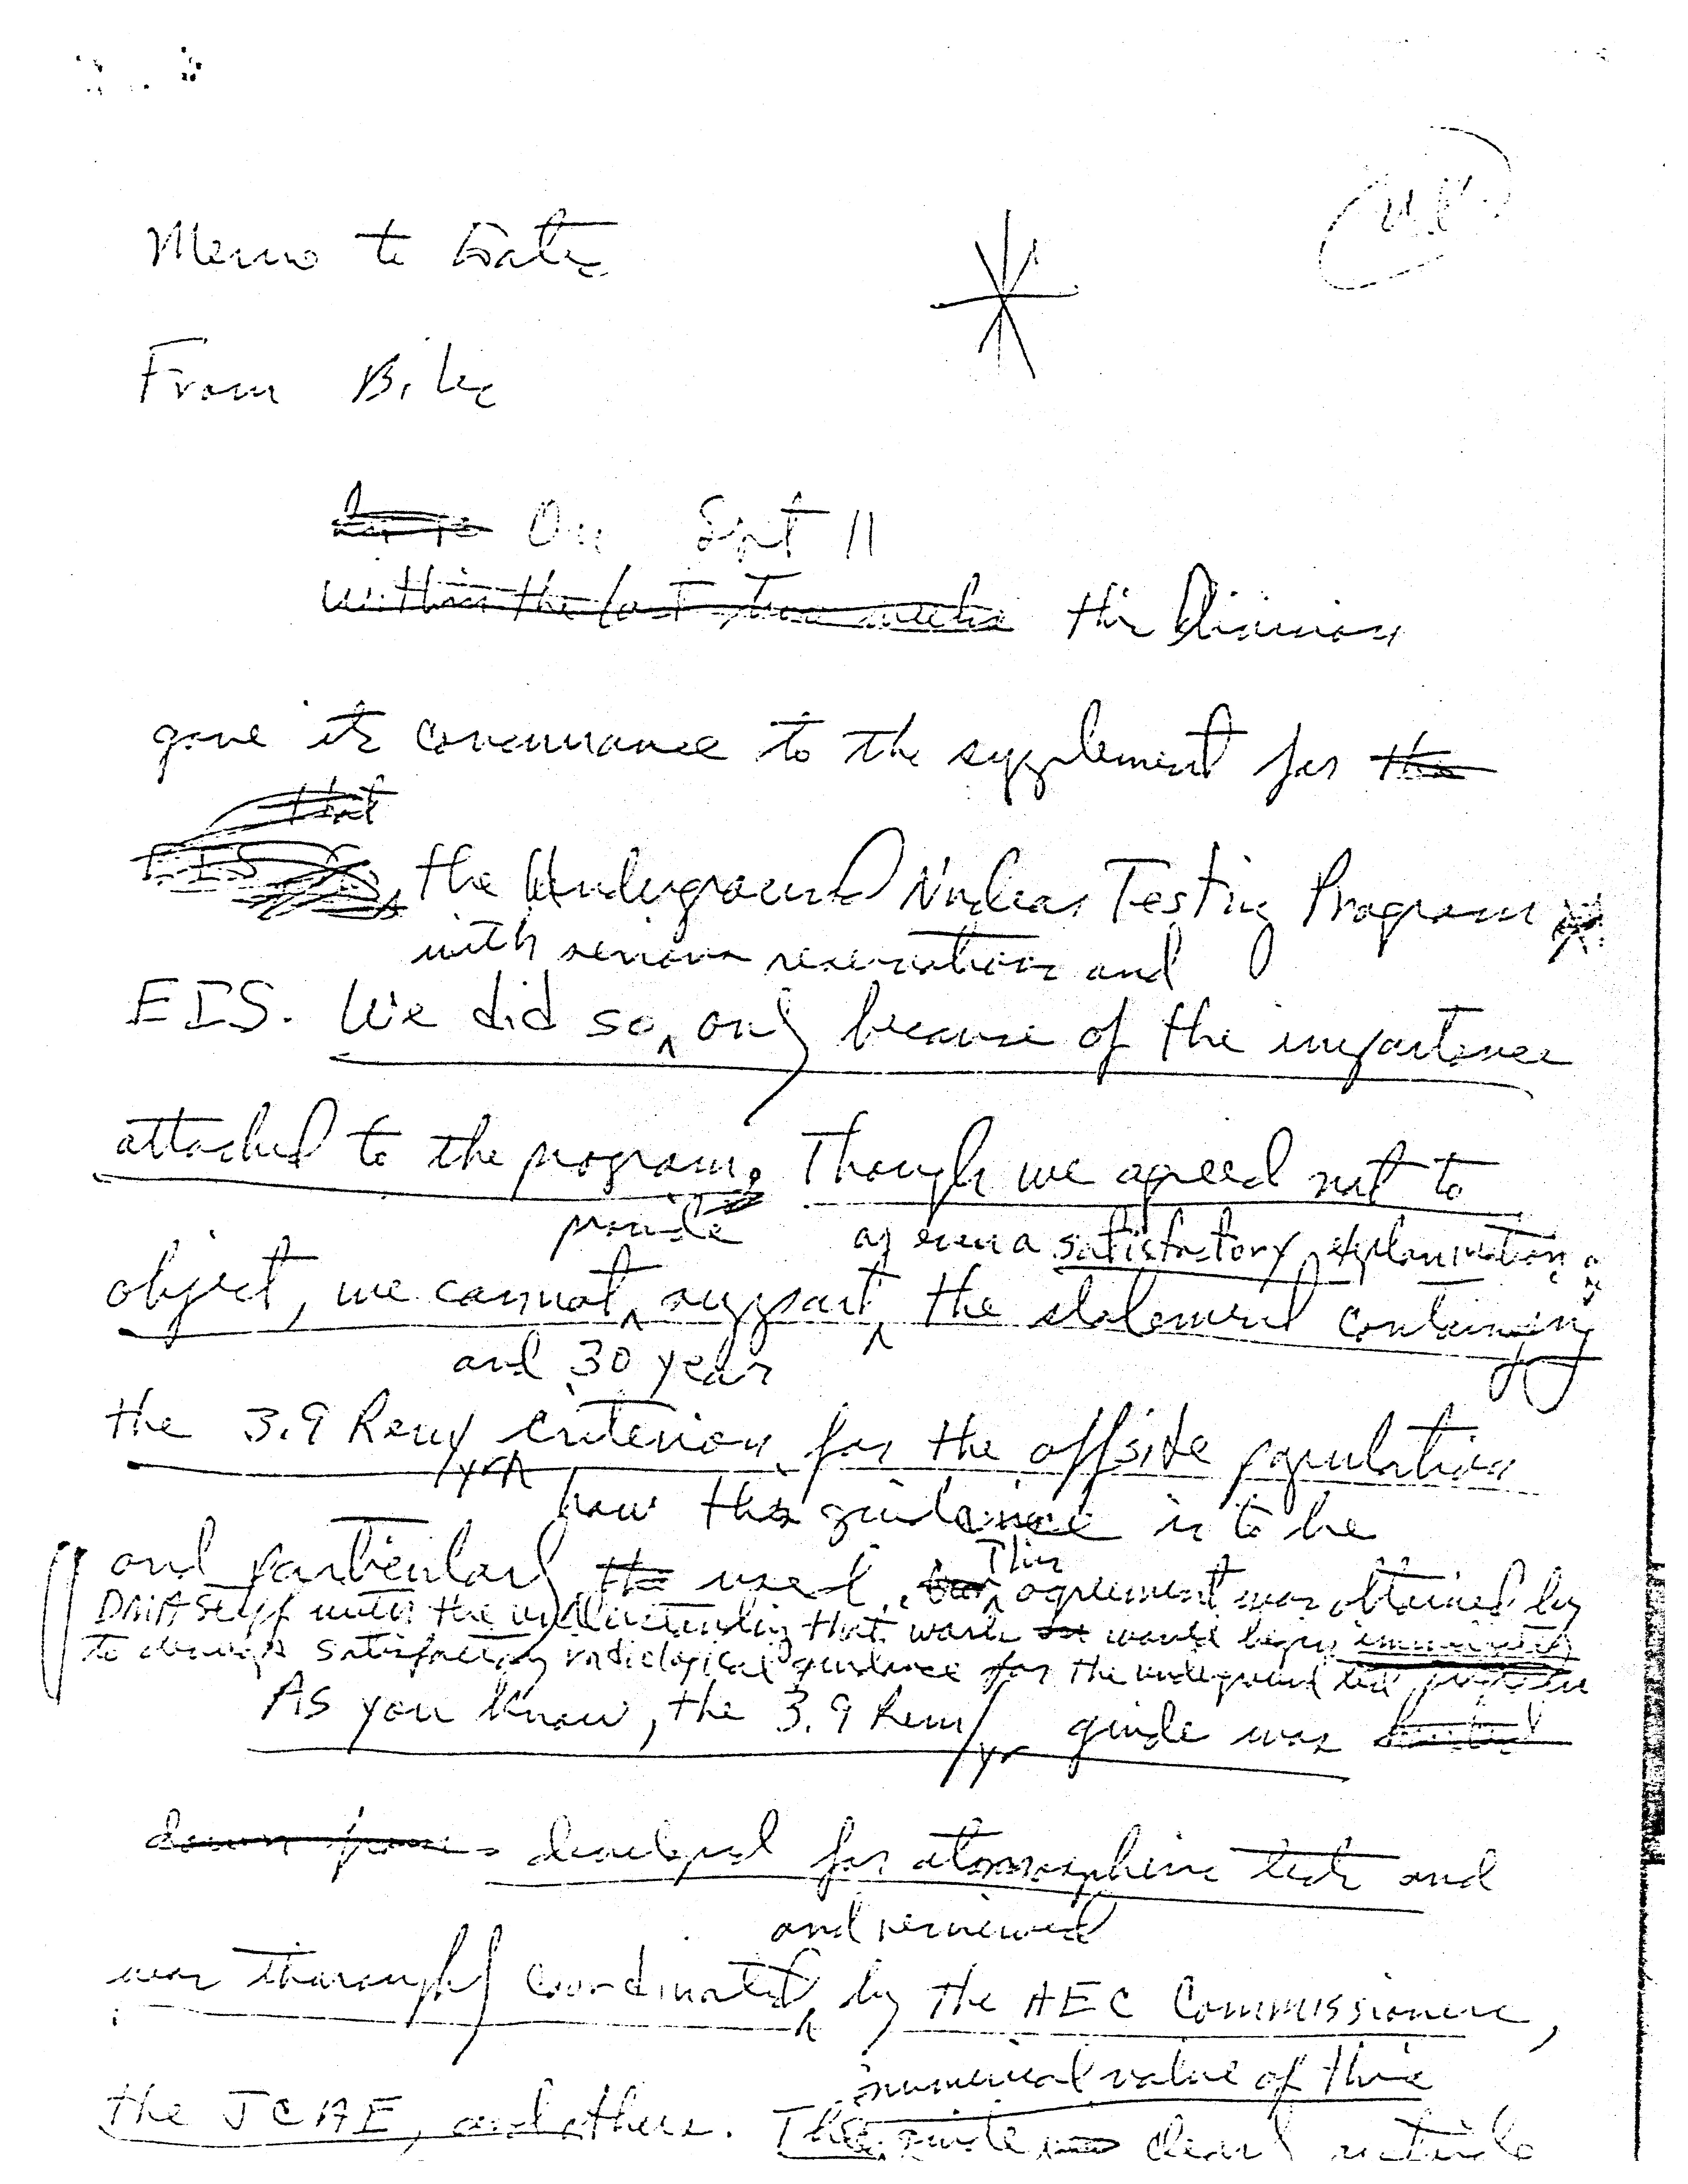 Memo to
From Biles
On Sept 11
within the last two weeks this Division
gave its concurrence to the supplement for the
that
EIS the Underground Nuclear Testing Program
with serious reservations and
EIS. We did so only because of the importance
attached to the program. Though we agreed not to
provide or even a satisfactory explanation of
object, we cannot support, the statement containing
and 30 year
the 3.9 Rem/yr criterion for the offsite population
how this guidance is to be
and particularly the used. This agreement was obtained by
DMA staff with the understanding that work would begin immediately
to develop satisfactory radiological guidance for the underground test program
As you know, the 3.9 Rem/yr guide was
down from developed for atmospheric tests and
and reviewed
was thoroughly coordinated by the AEC Commissioners,
numerical value of this
the JCAE, and others. The guide clearly outside